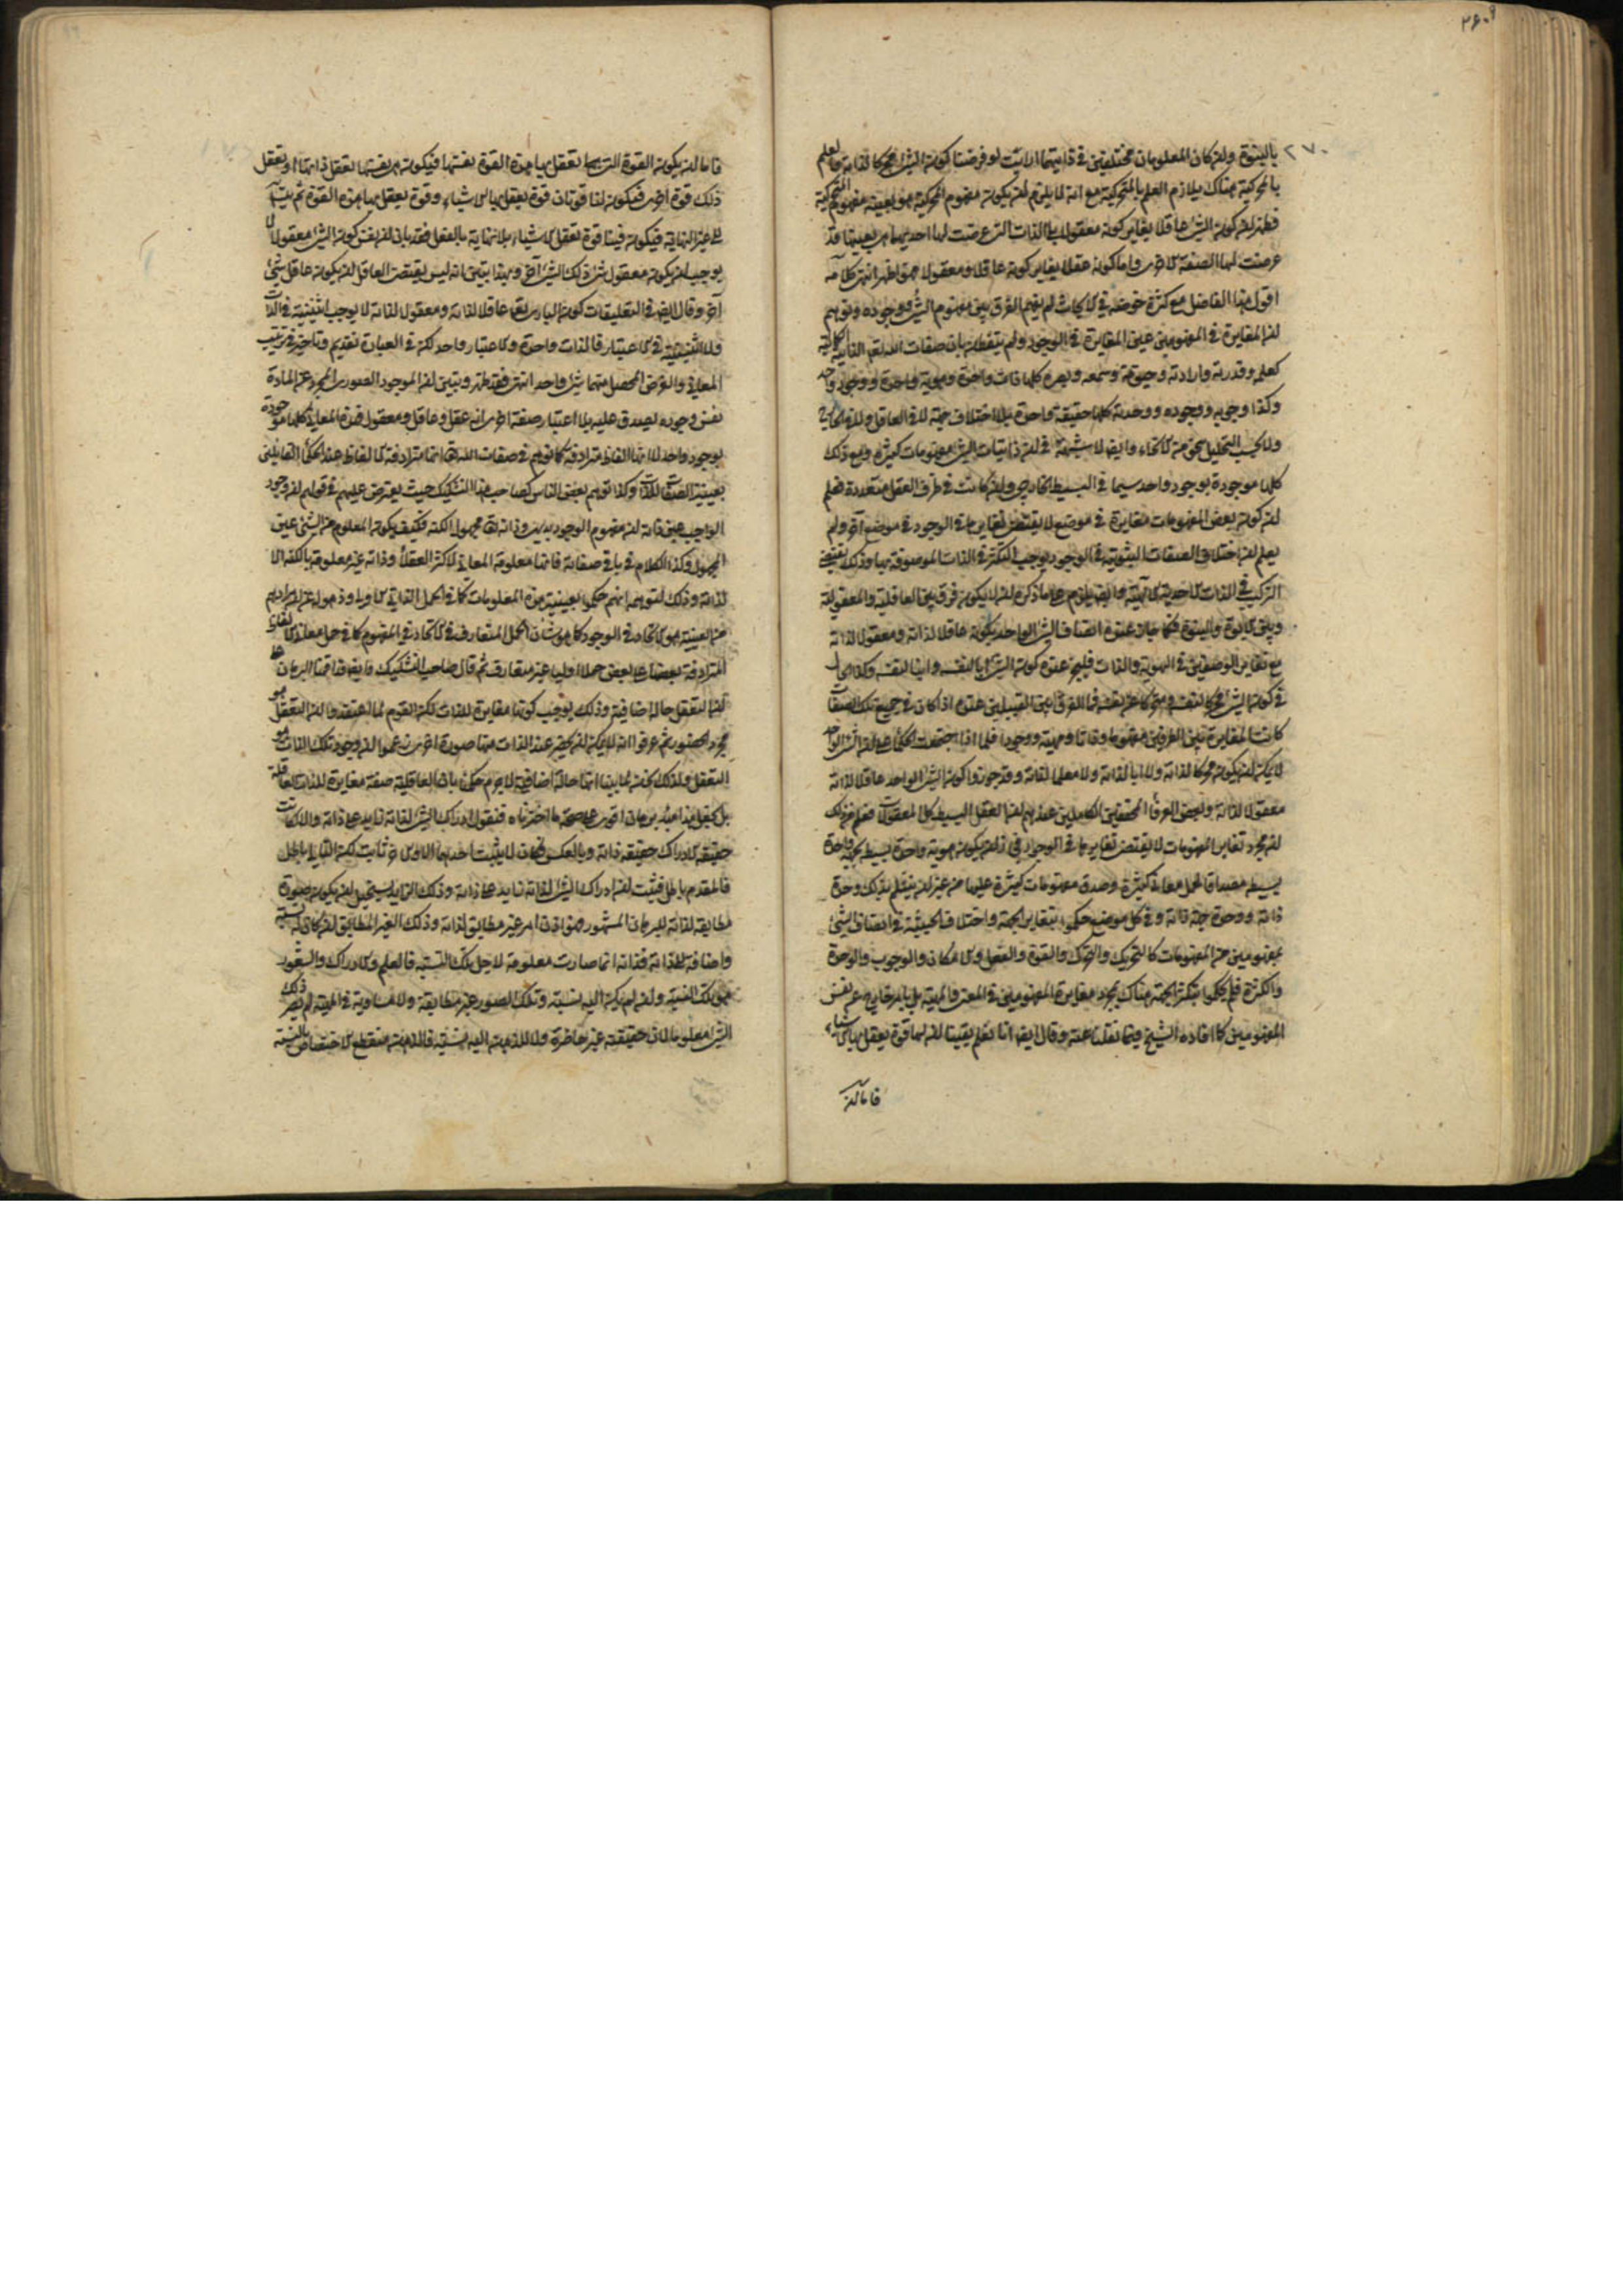 ۲۶۰۹
۲۷۰
بالبنوة ولن كان المعلومان مختلفين في ذاتيتهما الا ثبت لو فرضنا كون الشئ محركا لذاته فالعلم
بالمحركية هناك يلازم العلم بالمتحركية مع انه لا يلزم لن يكون مفهوم المحركية هو بعينه مفهوم المتحركية
فظهر لن كون الشئ عاقلا يغاير كونه معقولا بل الذات التي عرضت لها احديهما هى بعينها قد
عرضت لها الصفة الاخرى واما كونه عقلا يغاير كونه عاقلا ومعقولا فهو اظهر انتهى كلامه
اقول هذا الفاضل مع كثرة خوضه في الابحاث لم يفهم الفرق بين مفهوم الشئ ووجوده وتوهم
لن المغايرة في المفهومين عين المغايرة في الوجود ولم يتفطن بان صفات الله تعالى الذاتية الكمالية
كعلمه وقدرته وارادته وحيوته وسمعه وبصره كلها ذات واحدة وهوية واحدة ووجود واحد
وكذا وجوبه ووجوده ووحدته كلها حقيقة واحدة بلا اختلاف جهة لا في العقل ولا في الخارج
ولا بحسب التحليل بنحو من الانحاء وايضا لا شبهة في لن ذاتيات الشئ مفهومات كثيرة ومع ذلك
كلها موجودة بوجود واحد سيما في البسيط الخارجى ولن كانت في ظرف العقل متعددة فعلم
لن كون بعض المفهومات متغايرة في موضع لا يقتضى تغايرها في الوجود في موضع آخر ولم
يعلم لن اختلاف الصفات الثبوتية في الوجود يوجب التكثر في الذات الموصوفة بها وذلك يقتضى
التركيب في الذات الاحدية الالهية وايضا يلزم على ما ذكره لن لا يكون فرق بين العاقلية والمعقولية
وبين الابوة والبنوة فكما جاز عنده اتصاف الشئ الواحد بكونه عاقلا لذاته ومعقولا لذاته
مع تغاير الوصفين في الهوية والذات فليجز عنده كون الشئ ابا لنفسه وابنا لنفسه وكذا الحال
في كون الشئ محركا لنفسه ومتحركا عن نفسه فما الفرق بين القبيلين عنده اذا كان في جميع تلك الصفات
كانت المغايرة بين الطرفين مفهوما وذاتا ومهية ووجودا فلما اذا اجتمعت الحكماء على لن الشئ الواحد
لا يمكن لن يكون محركا لذاته ولا ابا لذاته ولا معلما لذاته وقد جوزوا كون الشئ الواحد عاقلا لذاته
معقولا لذاته ولبعض العرفاء المحققين الكاملين عندهم لن العقل البسيط كل المعقولات فعلم من ذلك
لن مجرد تغاير المفهومات لا يقتضى تغايرها في الوجود في لن يكون هوية واحدة بسيطة بجهة واحدة
بسيطة مصداقا لحمل معانى كثيرة وصدق مفهومات كثيرة عليها من غير لن ينثلم بذلك وحدة
ذاته ووحدة جهة ذاته وفي كل موضع حكموا بتغاير الجهة واختلاف الحيثية في اتصاف الشئ
بمفهومين من المفهومات كالتحريك والتحرك والقوة والفعل والامكان والوجوب والوحدة
والكثرة فلم يحكموا بتكثر الجهة هناك بمجرد مغايرة المفهومين في المعنى والمهية بل بامر خارج عن نفس
المفهومين كما افاده الشيخ فيما نقلنا عنه وقال ايضا انا نعلم يقينا لن لنا قوة نعقل بها الاشياء
فاما لن
فاما لن يكون القوة التى بها نعقل بها هذه القوة نفسها فيكون هى بنفسها تعقل ذاتها او تعقل
ذلك قوة اخرى فيكون لنا قوتان قوة نعقل بها الاشياء وقوة نعقل بها هذه القوة ثم يتسلسل
الى غير النهاية فيكون فينا قوة تعقل الاشياء بلا نهاية بالفعل فقد بان لن نفس كون الشئ معقولا لا
يوجب لن يكون معقول شئ ذلك الشئ آخر وبهذا يتبين انه ليس يقتضى العاقل لن يكون عاقل شئ
آخر وقال ايضا في التعليقات كون البارى تعالى عاقلا لذاته ومعقولا لذاته لا يوجب اثنينية في الذات
ولا اثنينية في الاعتبار فالذات واحدة والاعتبار واحد لكن في العبارة تقديم وتاخير في ترتيب
المعانى والغرض المحصل منهما شئ واحد انتهى فقد ظهر وتبين لن الموجود الصورى المجرد عن المادة
نفس وجوده يصدق عليه بلا اعتبار صفة اخرى انه عقل وعاقل ومعقول فهذه المعانى كلها موجودة
بوجود واحد لا انها الفاظ مترادفة كما توهم في صفات الله تعالى انها مترادفة الالفاظ عند الحكماء القائلين
بعينية الصفات للذات وكذا توهم بعض الناس كصاحب هذا التشكيك حيث يعترض عليهم في قولهم لن وجود
الواجب عين ذاته لن مفهوم الوجود بديهى وذاته تعالى مجهول الكنه فكيف يكون المعلوم من الشئ عين
المجهول وكذا الكلام في باقى صفاته فانها معلومة المعانى لاكثر العقلاء وذاته غير معلومة بالكنه الا
لذاته وذلك لتوهمه انهم حكموا بعينية هذه المعلومات كما في الحمل الذاتى الاولى وذهوله عن لن مرادهم
من العينية هو الاتحاد في الوجود كما هو شان الحمل المتعارف لا الاتحاد في المفهوم كما في حمل معانى الالفاظ
المترادفة بعضها على بعض حملا اوليا غير متعارف ثم قال صاحب التشكيك وايضا فقد اقمنا البرهان على
لن التعقل حالة اضافية وذلك يوجب كونها مغايرة للذات لكن القوم لما اعتقدوا لن التعقل هو
مجرد الحضور ثم عرفوا انه لا يمكن لن يحضر عند الذات منها صورة اخرى زعموا لن وجود تلك الذات هو
التعقل ولذلك نحن لما بينا انها حالة اضافية لا جرم حكمنا بان العاقلية صفة مغايرة للذات العاقلة
بل نجعل هذا مبدء برهان اقوى على صحة ما اخترناه فنقول ادراك الشئ لذاته زايد على ذاته والا كانت
حقيقة الادراك حقيقة ذاته وبالعكس فكان لا يثبت احدهما الا والآخر ثابت لكن التالى باطل
فالمقدم باطل فثبت لن ادراك الشئ لذاته زايد على ذاته وذلك الزايد يستحيل لن يكون صورة
مطابقة لذاته للبرهان المشهور فهو اذن امر غير مطابق لذاته وذلك الغير المطابق لن كان له نسبة
واضافة الى ذاته فذاته انما صارت معلومة لاجل تلك النسبة فالعلم والادراك والشعور
هو تلك النسبة ولن لم يكن اليه نسبة وتلك الصور غير مطابقة ولا مساوية في المهية لم يصر ذلك
الشئ معلوما لان حقيقته غير حاضرة ولا للذهن اليه نسبة فالذهن منقطع الاختصاص بالنسبة